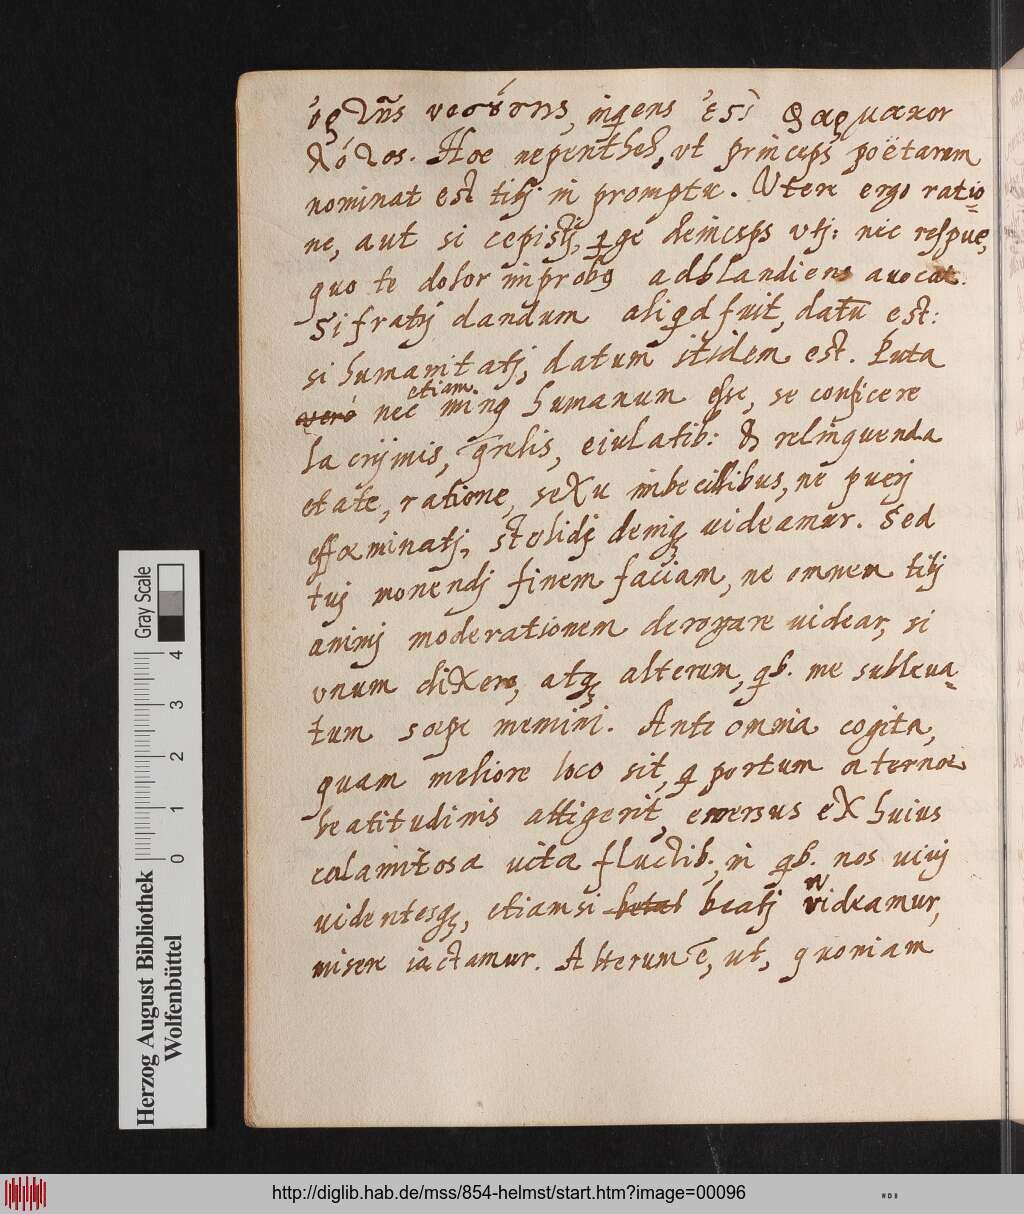 ὀργῆς νεούσης, ingens ἐςὶ φαρμακον
λόγος. Hoc nepenthes, vt princeps poëtarum
nominat est tibi in promptu. Vtere ergo ratio=
ne, aut si cepisti, ꝑge deinceps vti: nec respue,
quo te dolor improbꝰ adblandiens auocat.
Si fratri dandum aliqd fuit, datū est:
si humanitati, datum itidem est. Puta
vero nec etiam minꝰ humanum esse, se conficere
lacrijmis, q̄relis, eiulatib: & relinquenda
etate, ratione, sexu imbecillibus, ne pueri
effœminati, stolidi deniq; uideamur. Sed
tui monendi finem faciam, ne omnem tibi
animi moderationem derogare uidear, si
vnum dixero, atq; alterum, qb. me subleua=
tum sæpe memini. Ante omnia cogita,
quam meliore loco sit, q portum æternæ
beatitudinis attigerit, emersus ex huius
calamitosa uita fluctib; in qb. nos uiui
uidentesq;, etiamsi beati videamur,
misere iactamur. Alterum ē, ut, quoniam
Herzog August Bibliothek
Wolfenbüttel
Gray Scale
0 1 2 3 4
http://diglib.hab.de/mss/854-helmst/start.htm?image=00096